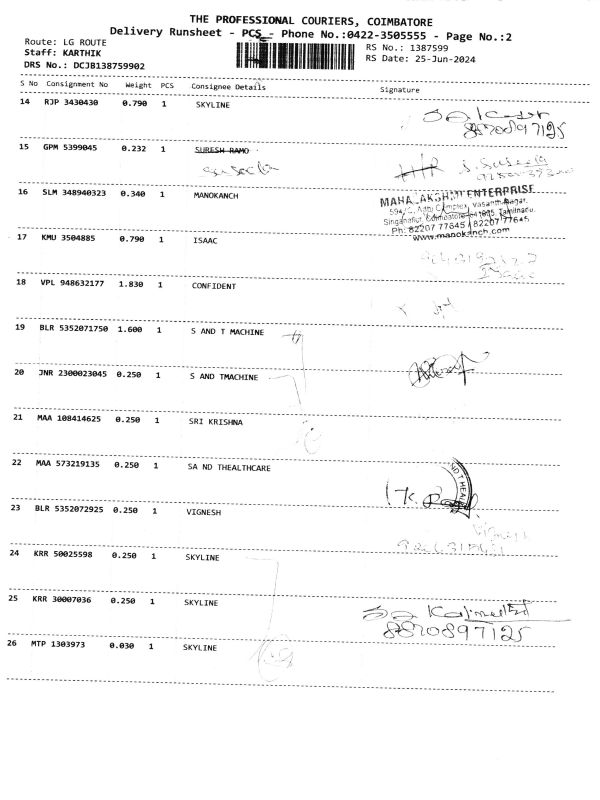 THE PROFESSIONAL COURIERS, COIMBATORE
Delivery Runsheet - PCS - Phone No.:0422-3505555 - Page No.:2
Route: LG ROUTE
RS No.: 1387599
Staff: KARTHIK
RS Date: 25-Jun-2024
DRS No.: DCJB138759902
S No Consignment No Weight PCS Consignee Details Signature
14 RJP 3430430 0.790 1 SKYLINE
8870897125
15 GPM 5399045 0.232 1 SURESH RAMO
S. Suseela
16 SLM 348940323 0.340 1 MANOKANCH
MAHALAKSHMI ENTERPRISE
Singanallur, Coimbatore-641005, Tamilnadu.
Ph: 82207 77645 / 82207 77645
www.manokanch.com
17 KMU 3504885 0.790 1 ISAAC
18 VPL 948632177 1.830 1 CONFIDENT
19 BLR 5352071750 1.600 1 S AND T MACHINE
20 JNR 2300023045 0.250 1 S AND TMACHINE
21 MAA 108414625 0.250 1 SRI KRISHNA
22 MAA 573219135 0.250 1 SA ND THEALTHCARE
23 BLR 5352072925 0.250 1 VIGNESH
Vignesh
24 KRR 50025598 0.250 1 SKYLINE
25 KRR 30007036 0.250 1 SKYLINE
8870897125
26 MTP 1303973 0.030 1 SKYLINE